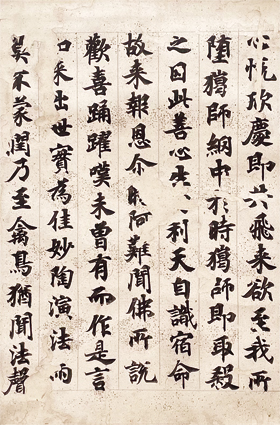 心悦欣慶即共飛来欲至我所
堕獦師網中於時獦師即取殺
之因此善心生忉利天自識宿命
故来報恩尒時阿難聞佛所説
歡喜踊躍嘆未曾有而作是言
如来出世實為佳妙陶演法雨
莫不蒙潤乃至禽鳥猶聞法聲